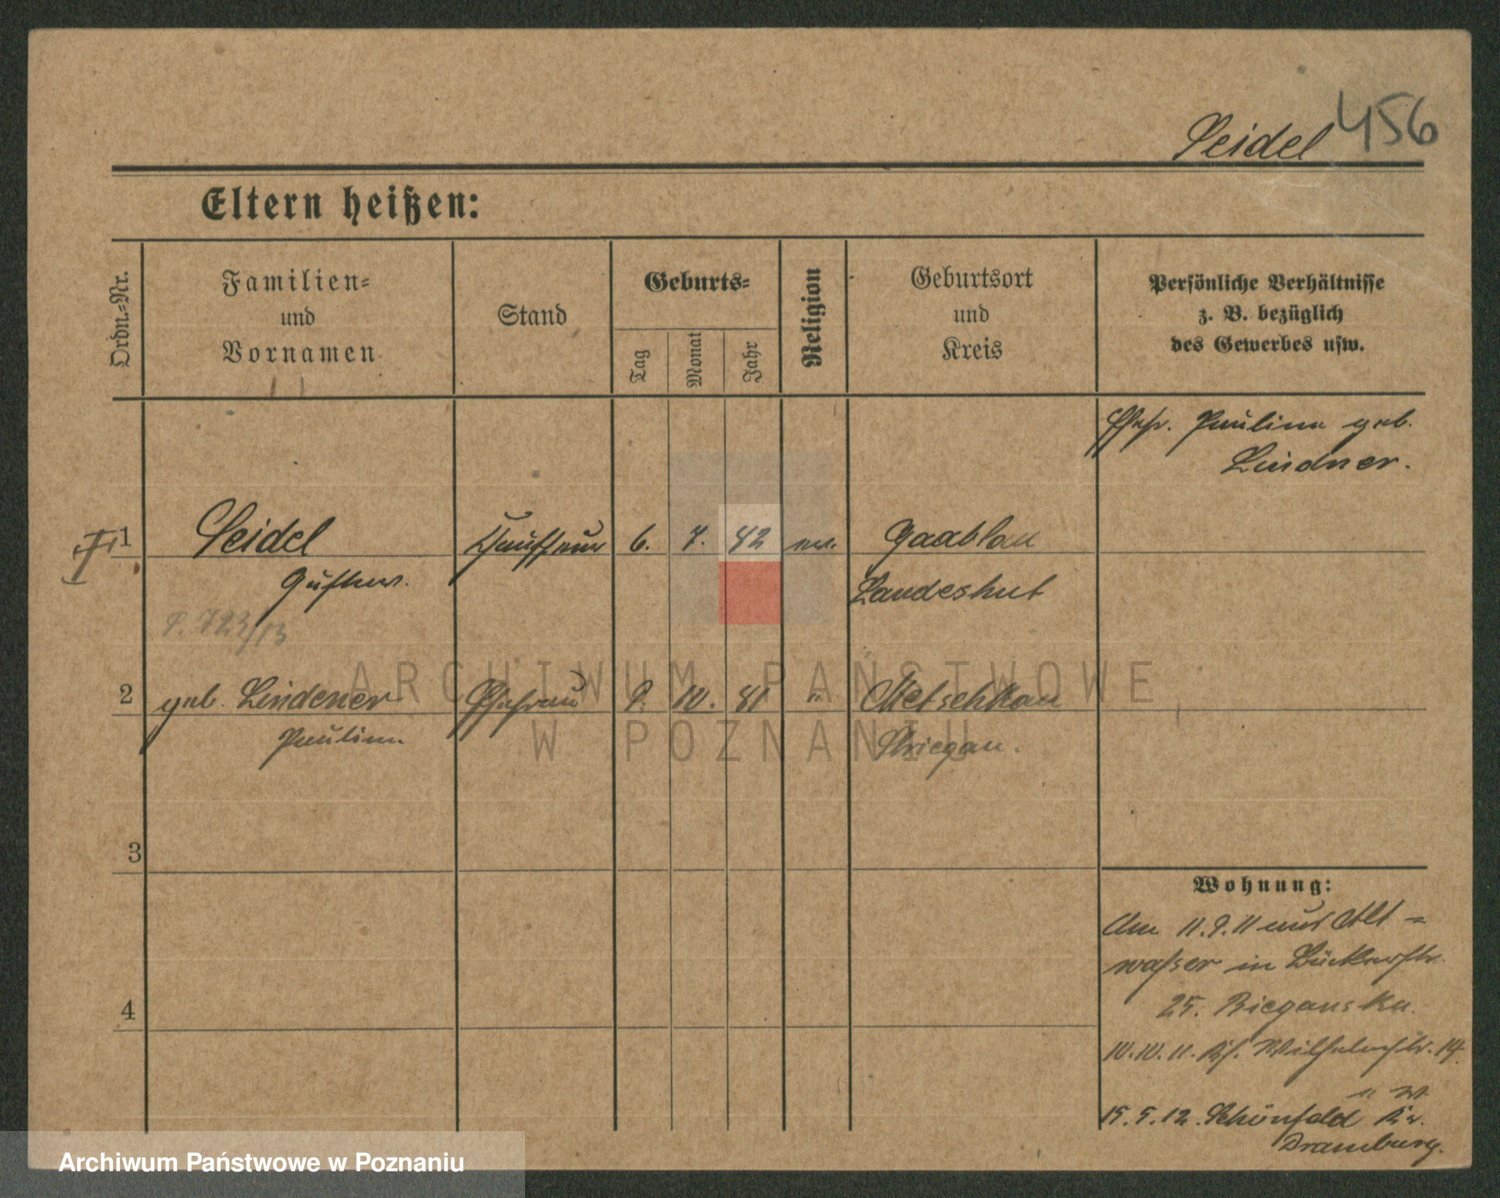 Seidel 456
Eltern heißen:
Ordn.-Nr.
Familien-
und
Vornamen
Stand
Geburts-
Tag
Monat
Jahr
Religion
Geburtsort
und
Kreis
Persönliche Verhältnisse
z. B. bezüglich
des Gewerbes usw.
Ehefr. Pauline geb.
Lindner.
1 Seidel Chauffeur 6. 7. 82 ev. Gaablau
Gustav. Landeshut
P. 723/13
2 geb. Lindener Ehefrau 9. 10. 81 " Metschkau
Pauline Striegau.
3
4
Wohnung:
Am 11.9.11 aus Alt=
wasser in Bäckerstr.
25.
10.10.11. Wilhelmstr. 14.
15.5.12. Schönfeld Kr.
Dramburg.
ARCHIWUM PAŃSTWOWE
W POZNANIU
Archiwum Państwowe w Poznaniu